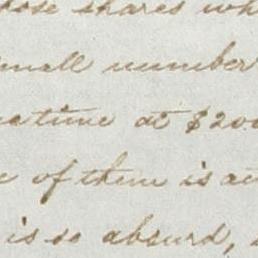 those shares wh
small number
a time at $200
e of them is ac
is so absurd,